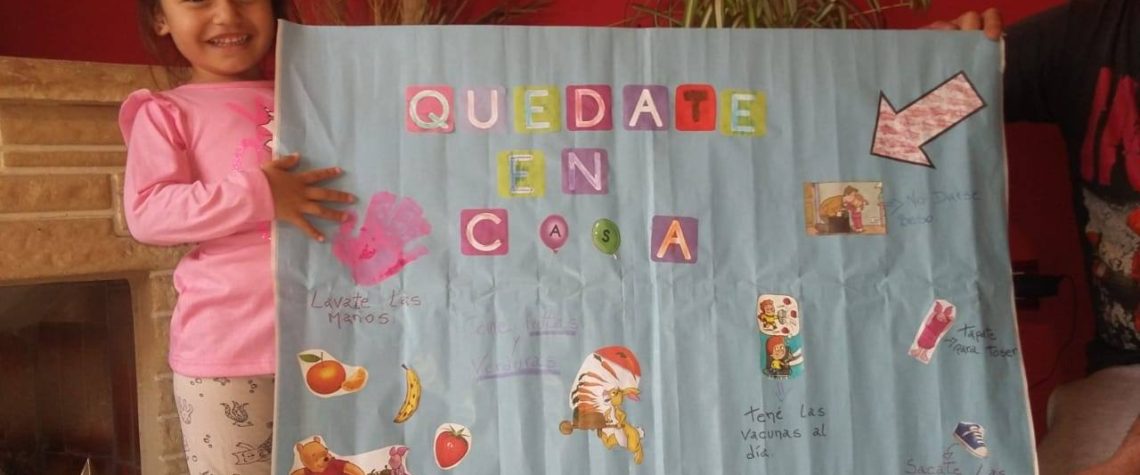 QUEDATE
EN
CASA
No Darse
Beso
Lavate Las
Manos.
Come frutas
y
Verduras
tapate
para toser
tené las
vacunas al
día.
Sacate Las